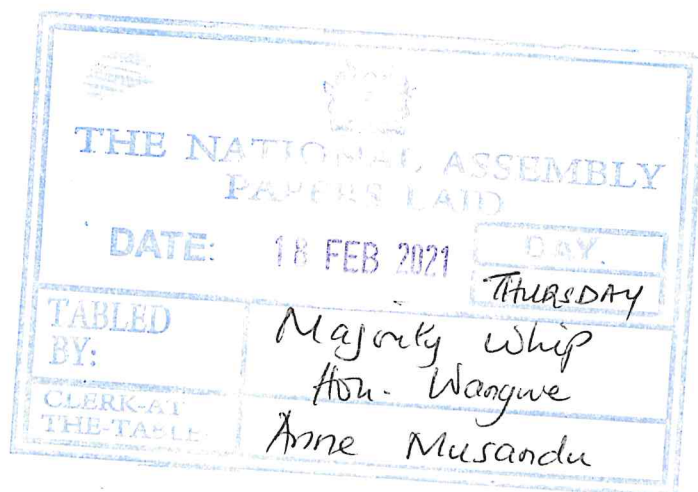 THE NATIONAL ASSEMBLY
PAPERS LAID
DATE: 18 FEB 2021 DAY.
THURSDAY
TABLED BY: Majority Whip
Hon. Wangwe
CLERK-AT THE-TABLE: Anne Musandu